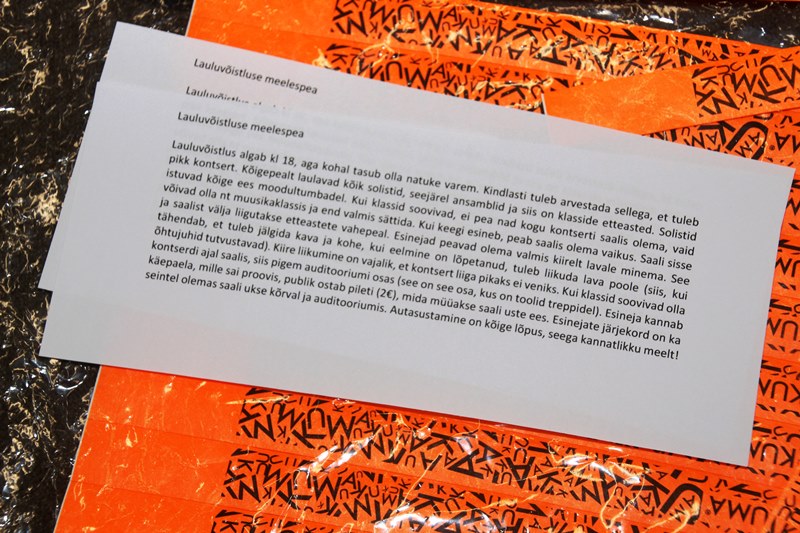 Lauluvõistluse meelespea
Lauluvõistluse meelespea
Lauluvõistlus algab kl 18, aga kohal tasub olla natuke varem. Kindlasti tuleb arvestada sellega, et tuleb
pikk kontsert. Kõigepealt laulavad kõik solistid, seejärel ansamblid ja siis on klasside etteasted. Solistid
istuvad kõige ees moodultumbadel. Kui klassid soovivad, ei pea nad kogu kontserti saalis olema, vaid
võivad olla nt muusikaklassis ja end valmis sättida. Kui keegi esineb, peab saalis olema vaikus. Saali sisse
ja saalist välja liigutakse etteastete vahepeal. Esinejad peavad olema valmis kiirelt lavale minema. See
tähendab, et tuleb jälgida kava ja kohe, kui eelmine on lõpetanud, tuleb liikuda lava poole (siis, kui
õhtujuhid tutvustavad). Kiire liikumine on vajalik, et kontsert liiga pikaks ei veniks. Kui klassid soovivad olla
kontserdi ajal saalis, siis pigem auditooriumi osas (see on see osa, kus on toolid treppidel). Esineja kannab
käepaela, mille sai proovis, publik ostab pileti (2€), mida müüakse saali uste ees. Esinejate järjekord on ka
seintel olemas saali ukse kõrval ja auditooriumis. Autasustamine on kõige lõpus, seega kannatlikku meelt!